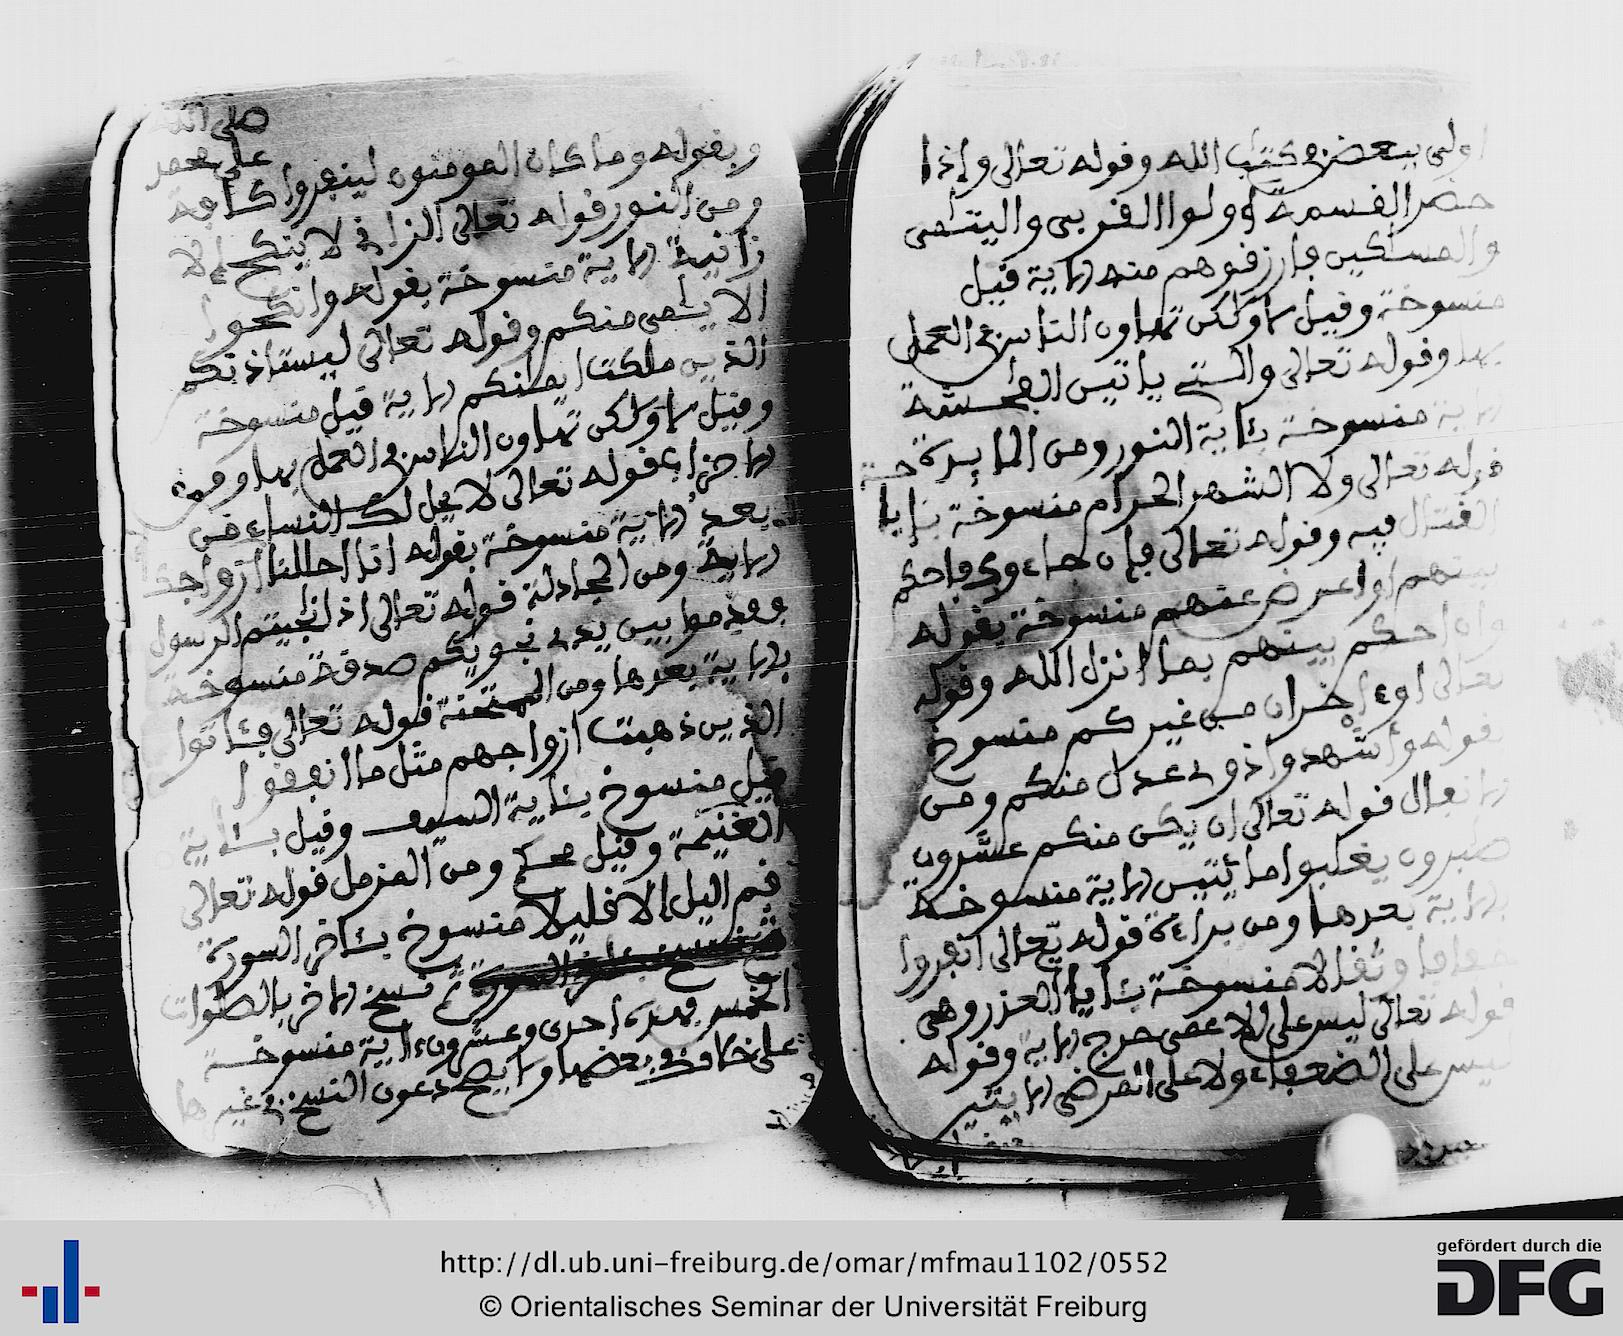 اولى ببعض في كتب الله وقوله تعالى وإذا
حضر القسمة أولوا القربى واليتمى
والمسكين فارزقوهم منه الاية قيل
منسوخة وقيل لا ولكن تهاون الناس في العمل
بها وقوله تعالى والتي ياتين الفحشة
الاية منسوخة بئاية النور ومن المايدة
قوله تعالى ولا الشهر الحرام منسوخة بإباحة
القتال فيه وقوله تعالى فإن جاءوك فاحكم
بينهم أو اعرض عنهم منسوخة بقوله
وان احكم بينهم بما انزل الله وقوله
تعالى أو ءاخران من غيركم منسوخ
بقوله وأشهدوا ذوى عدل منكم ومن
الانفال قوله تعالى إن يكن منكم عشرون
صبرون يغلبوا مايتين الاية منسوخة
بالاية بعدها ومن براءة قوله تعالى انفروا
خفافا وثقالا منسوخة بئايا العذر وهي
قوله تعالى ليس على الاعمى حرج الاية وقوله
ليس على الضعفاء ولا على المرضى الايتين
صلى الله
على محمد
وبقوله وما كان المومنون لينفروا كافة
ومن النور قوله تعالى الزاني لا ينكح إلا
زانية الاية منسوخة بقوله وانكحوا
الايمى منكم وقوله تعالى ليستاذنكم
الذين ملكت ايمنكم الاية قيل منسوخة
وقيل لا ولكن تهاون الناس في العمل بها ومن
الاحزاب قوله تعالى لا يحل لك النساء من
بعد الاية منسوخة بقوله انا احللنا ازواجك
الاية ومن المجادلة قوله تعالى اذا نجيتم الرسول
فقدموا بين يدى نجويكم صدقة منسوخة
بالاية بعدها ومن الممتحنة قوله تعالى فئاتوا
الذين ذهبت ازواجهم مثل ما انفقوا
قيل منسوخ بئاية السيف وقيل بئاية
الغنيمة وقيل محكم ومن المزمل قوله تعالى
قم اليل الا قليلا منسوخ بئاخر السورة
ثم نسخ الاخر بالصلوات
الخمس فهذه إحدى وعشرون ءاية منسوخة
على خلاف في بعضها ولا يصح دعوى النسخ في غيرها
http://dl.ub.uni-freiburg.de/omar/mfmau1102/0552
© Orientalisches Seminar der Universität Freiburg
gefördert durch die
DFG